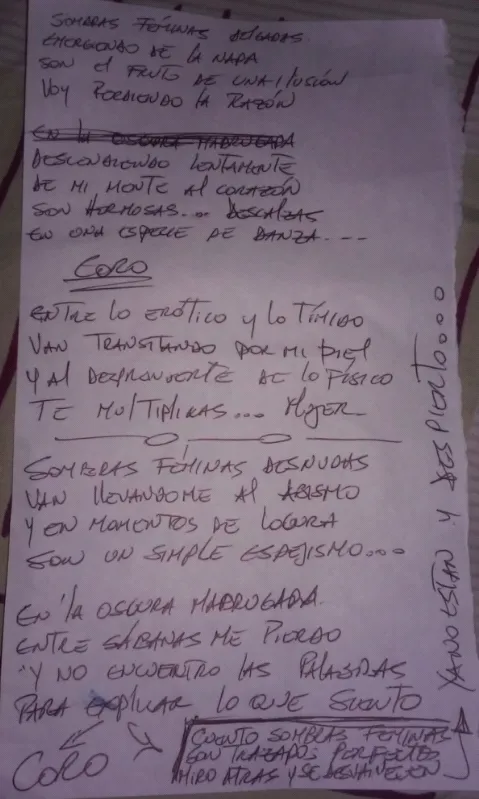 SOMBRAS FÉMINAS DELGADAS
EMERGIENDO DE LA NADA
SON EL FRUTO DE UNA ILUSIÓN
VOY PERDIENDO LA RAZÓN
EN LA OSCURA MADRUGADA
DESCENDIENDO LENTAMENTE
DE MI MENTE AL CORAZÓN
SON HERMOSAS.... DESCALZAS
EN UNA ESPECIE DE DANZA....
CORO
ENTRE LO ERÓTICO Y LO TÍMIDO
VAN TRANSITANDO POR MI PIEL
Y AL DESPRENDERTE DE LO FÍSICO
TE MULTIPLICAS... MUJER
SOMBRAS FÉMINAS DESNUDAS
VAN LLEVANDOME AL ABISMO
Y EN MOMENTOS DE LOCURA
SON UN SIMPLE ESPEJISMO....
EN LA OSCURA MADRUGADA
ENTRE SÁBANAS ME PIERDO
Y NO ENCUENTRO LAS PALABRAS
PARA EXPLICAR LO QUE SIENTO
CORO
CUENTO SOMBRAS FEMINAS
SON TRAZADOS PERFECTOS
MIRO ATRAS Y SE DESVANECEN
YA NO ESTAN Y DESPIERTO....